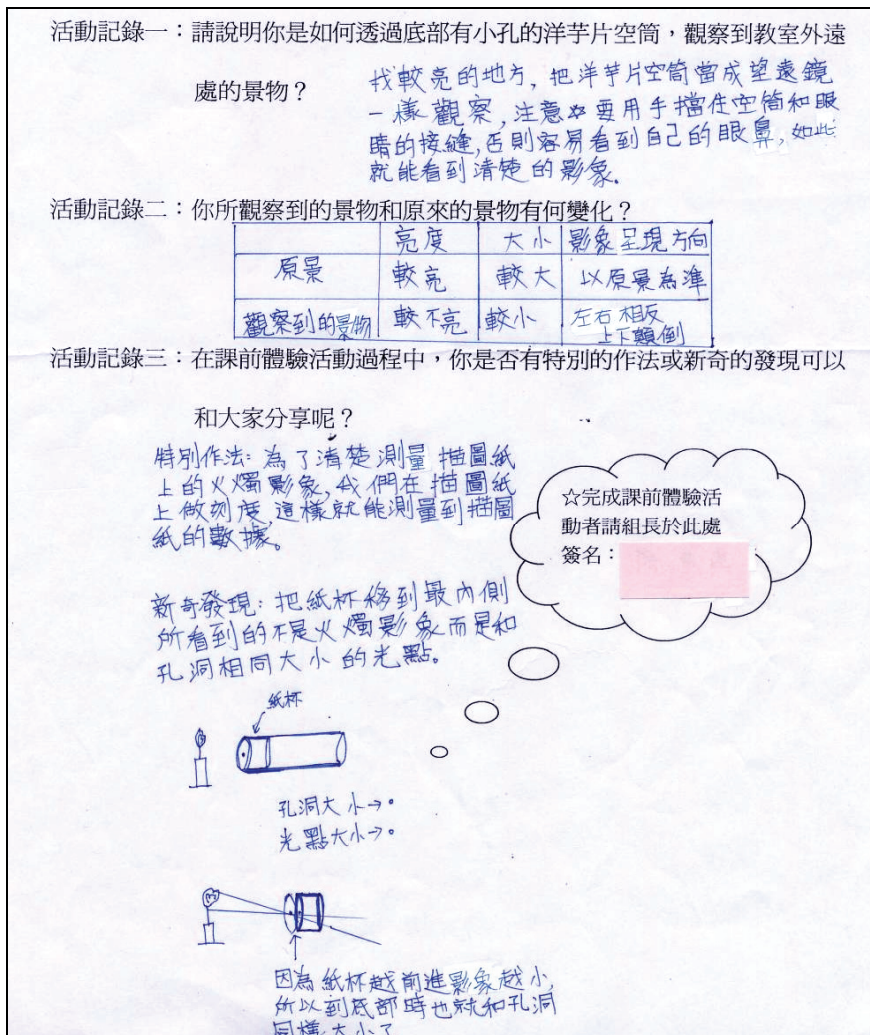 活動記錄一：請說明你是如何透過底部有小孔的洋芋片空筒，觀察到教室外遠
處的景物？
找較亮的地方，把洋芋片空筒當成望遠鏡
一樣觀察，注意要用手擋住空筒和眼
睛的接縫，否則容易看到自己的眼鼻，如此
就能看到清楚的影象。
活動記錄二：你所觀察到的景物和原來的景物有何變化？
亮度 大小 影象呈現方向
原景 較亮 較大 以原景為準
觀察到的景物 較不亮 較小 左右相反
上下顛倒
活動記錄三：在課前體驗活動過程中，你是否有特別的作法或新奇的發現可以
和大家分享呢？
特別作法：為了清楚測量描圖紙
上的火燭影象，我們在描圖紙
上做刻度，這樣就能測量到描圖
紙的數據。
☆完成課前體驗活
動者請組長於此處
簽名：
新奇發現：把紙杯移到最內側
所看到的不是火燭影象而是和
孔洞相同大小的光點。
紙杯
孔洞大小→。
光點大小→。
因為紙杯越前進影象越小，
所以到底部時也就和孔洞
同樣大小了